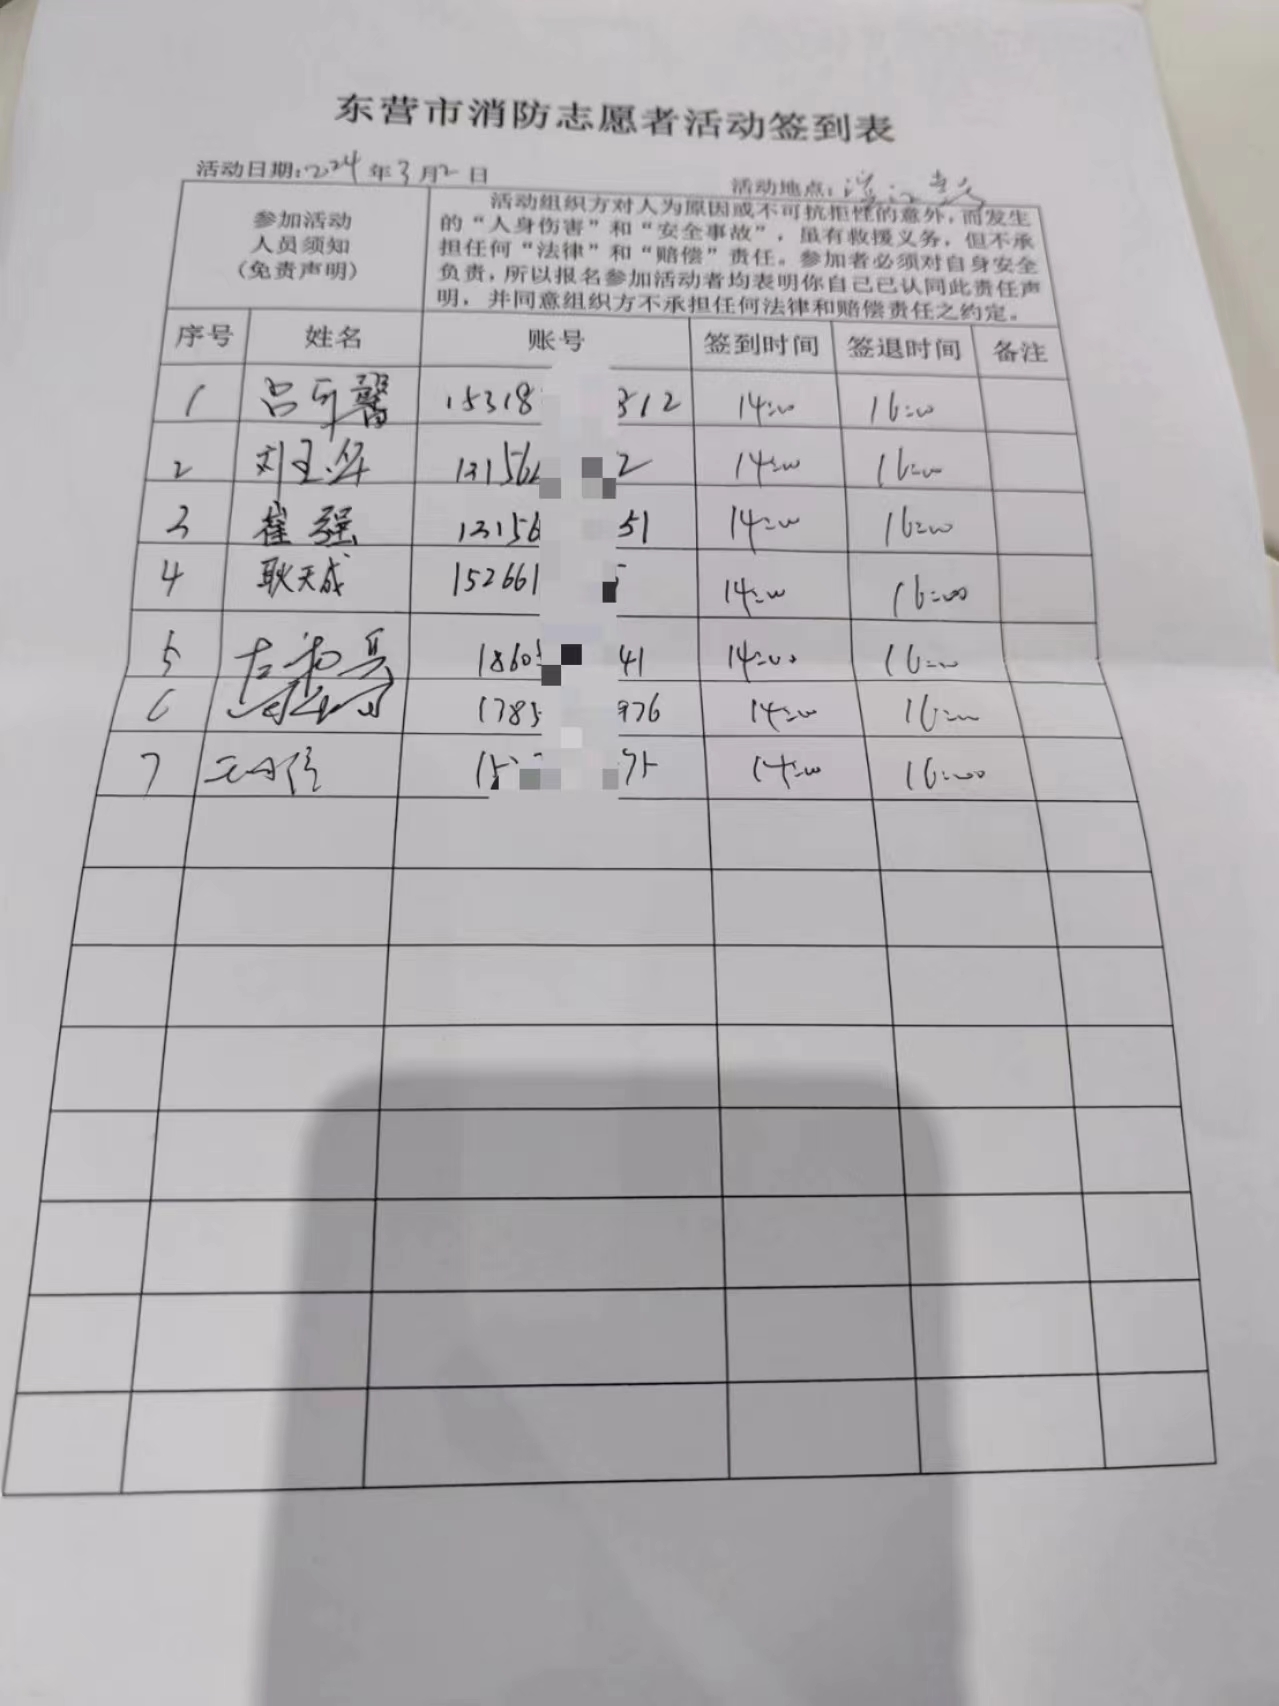 东营市消防志愿者活动签到表
活动日期:2024年3月2日 活动地点:
参加活动
人员须知
(免责声明)
活动组织方对人为原因或不可抗拒性的意外,而发生
的“人身伤害”和“安全事故”,虽有救援义务,但不承
担任何“法律”和“赔偿”责任。参加者必须对自身安全
负责,所以报名参加活动者均表明你自己已认同此责任声
明,并同意组织方不承担任何法律和赔偿责任之约定。
序号 姓名 账号 签到时间 签退时间 备注
1 吕 馨 15318 312 14:00 16:00
2 刘玉华 13156 2 14:00 16:00
3 崔强 13156 51 14:00 16:00
4 耿天成 152661 14:00 16:00
5 1860 41 14:00 16:00
6 1785 976 14:00 16:00
7 15 75 14:00 16:00